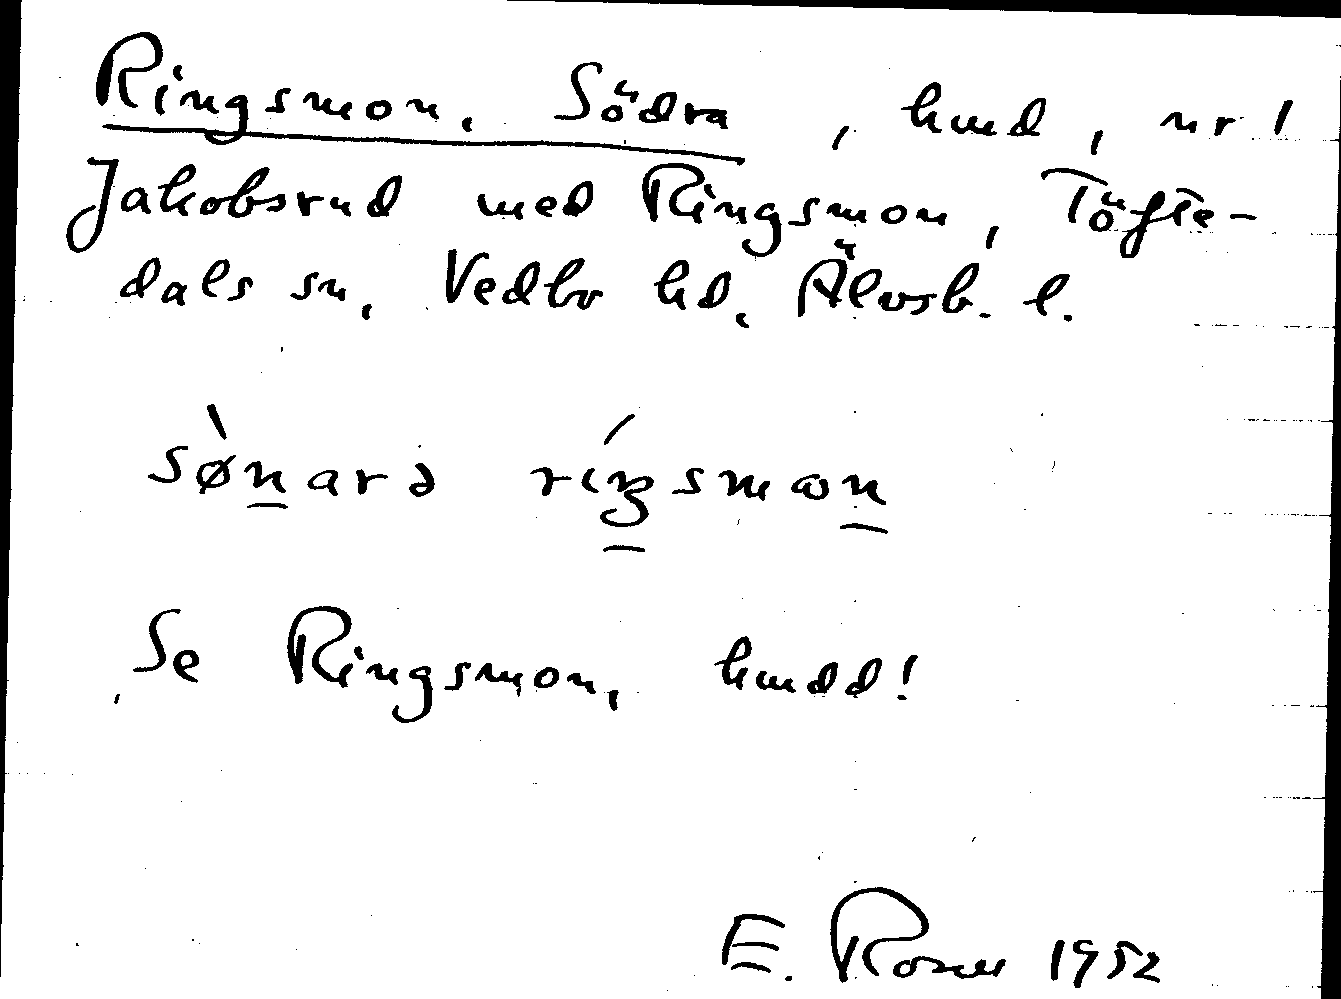 Ringsmon, Södra, hmd, nr 1
Jakobsrud med Ringsmon, Töfte-
dals sn, Vedbo hd, Älvsb. l.
sø̀narə ríŋsmon
Se Ringsmon, hmdd!
E. Rosen 1952